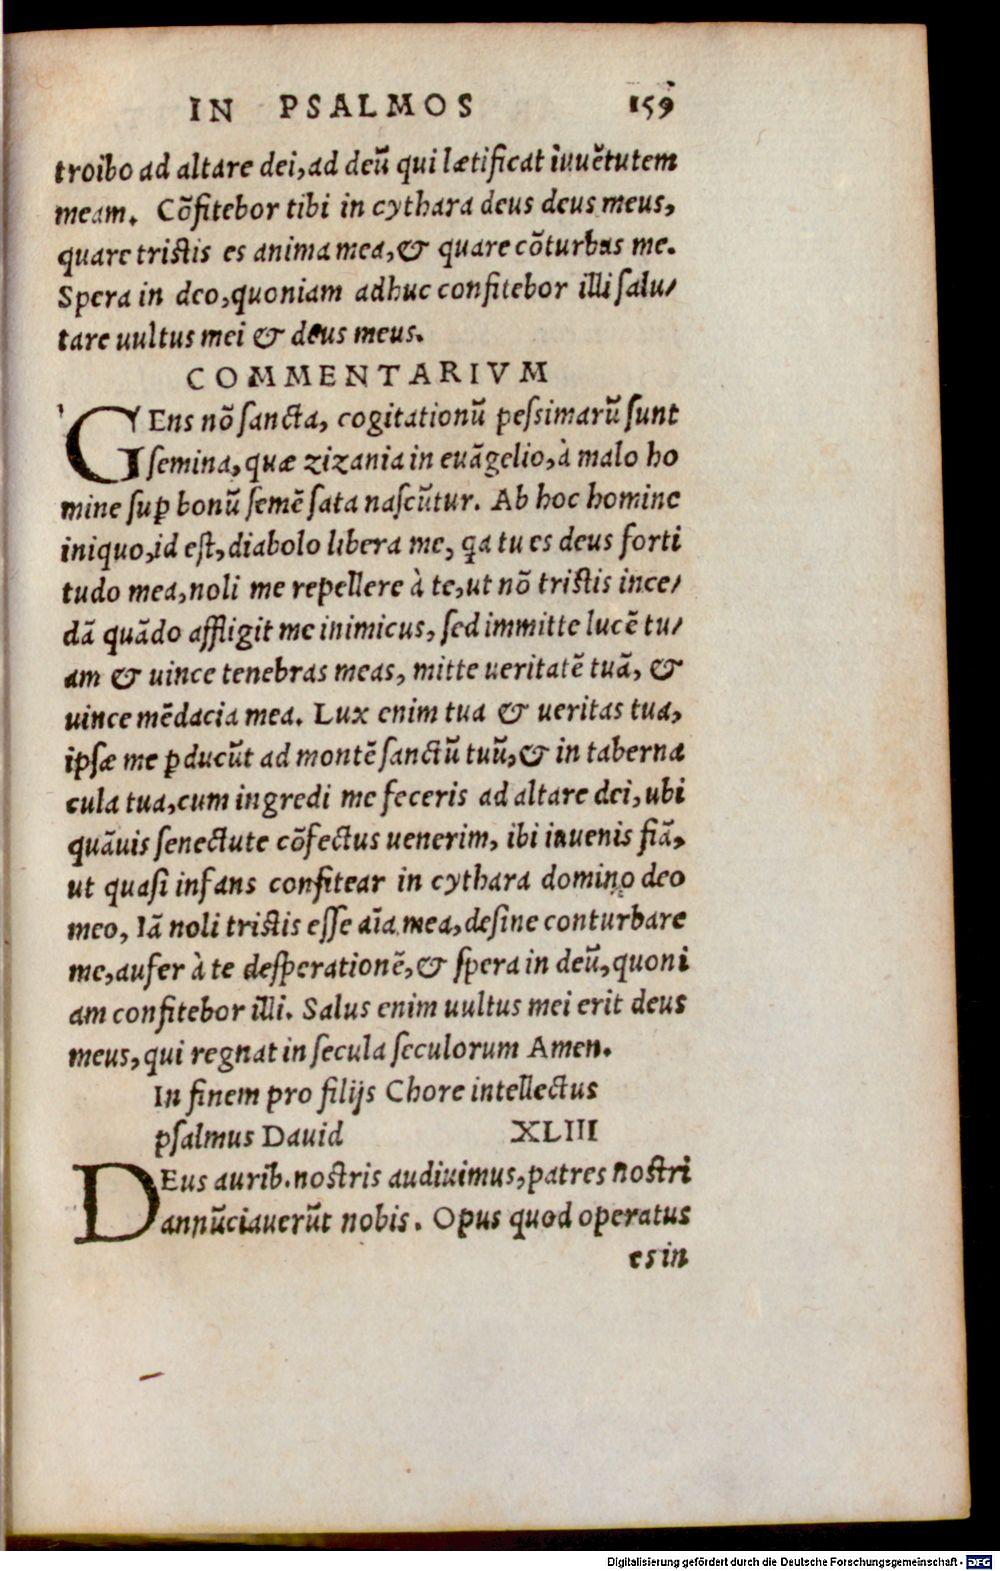 IN PSALMOS 159
troibo ad altare dei, ad deū qui lætificat iuuētutem
meam. Cōfitebor tibi in cythara deus deus meus,
quare tristis es anima mea, & quare cōturbas me.
Spera in deo, quoniam adhuc confitebor illi salu/
tare uultus mei & deus meus.
COMMENTARIVM
GEns nō sancta, cogitationū pessimarū sunt
semina, quæ zizania in euāgelio, à malo ho
mine suꝑ bonū semē sata nascūtur. Ab hoc homine
iniquo, id est, diabolo libera me, q̃a tu es deus forti
tudo mea, noli me repellere à te, ut nō tristis ince/
dā quādo affligit me inimicus, sed immitte lucē tu/
am & uince tenebras meas, mitte ueritatē tuā, &
uince mēdacia mea. Lux enim tua & ueritas tua,
ipsæ me ꝑducūt ad montē sanctū tuū, & in taberna
cula tua, cum ingredi me feceris ad altare dei, ubi
quāuis senectute cōfectus uenerim, ibi iuuenis fiā,
ut quasi infans confitear in cythara domino deo
meo, Iā noli tristis esse aīa mea, desine conturbare
me, aufer à te desperationē, & spera in deū, quoni
am confitebor illi. Salus enim uultus mei erit deus
meus, qui regnat in secula seculorum Amen.
In finem pro filijs Chore intellectus
psalmus Dauid XLIII
DEus aurib. nostris audiuimus, patres nostri
annūciauerūt nobis. Opus quod operatus
es in
Digitalisierung gefördert durch die Deutsche Forschungsgemeinschaft - DFG